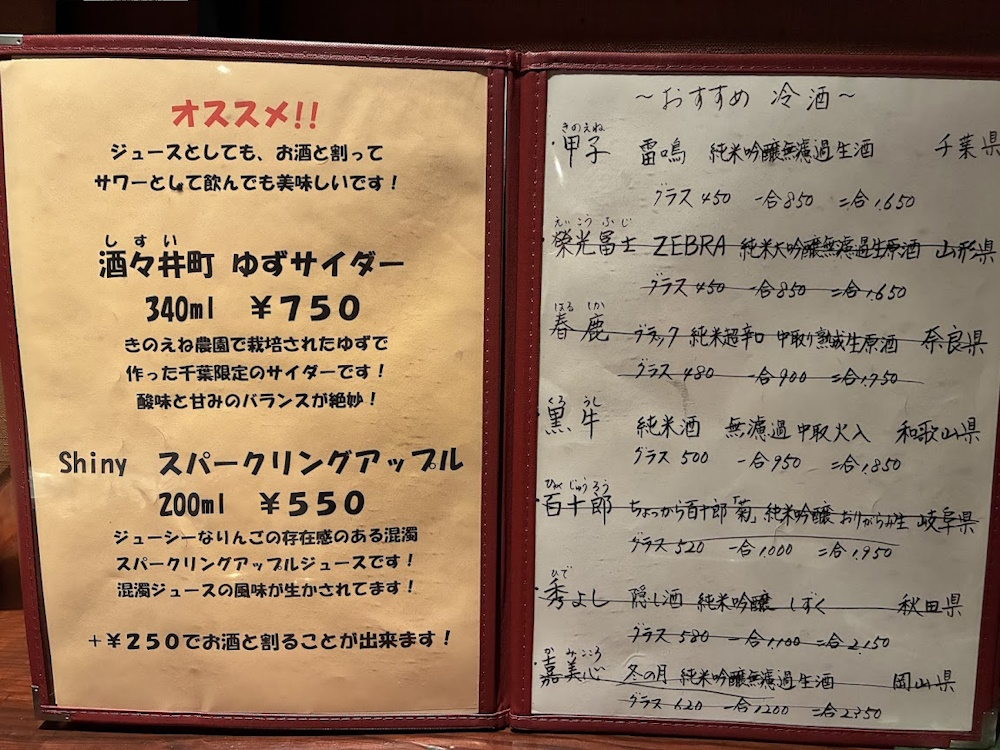 オススメ!!
ジュースとしても、お酒と割って
サワーとして飲んでも美味しいです！
しすい
酒々井町 ゆずサイダー
340ml ￥７５０
きのえね農園で栽培されたゆずで
作った千葉限定のサイダーです！
酸味と甘みのバランスが絶妙！
Shiny スパークリングアップル
200ml ￥５５０
ジューシーなりんごの存在感のある混濁
スパークリングアップルジュースです！
混濁ジュースの風味が生かされてます！
＋￥２５０でお酒と割ることが出来ます！
～おすすめ 冷酒～
きのえね
・甲子 雷鳴 純米吟醸無濾過生酒 千葉県
グラス450 一合850 二合1,650
えいこうふじ
・榮光冨士 ZEBRA 純米大吟醸無濾過生原酒 山形県
グラス450 一合850 二合1,650
はるしか
・春鹿 ブラック 純米超辛口 中取り熟成生原酒 奈良県
グラス480 一合900 二合1,750
くろうし
・黒牛 純米酒 無濾過中取火入 和歌山県
グラス500 一合950 二合1,850
ひゃくじゅうろう
・百十郎 ちょっから百十郎「菊」純米吟醸 おりがらみ生 岐阜県
グラス520 一合1,000 二合1,950
ひで
・秀よし 隠し酒 純米吟醸 しずく 秋田県
グラス580 一合1,100 二合2,150
かみこころ
・嘉美心 冬の月 純米吟醸無濾過生酒 岡山県
グラス620 一合1200 二合2350